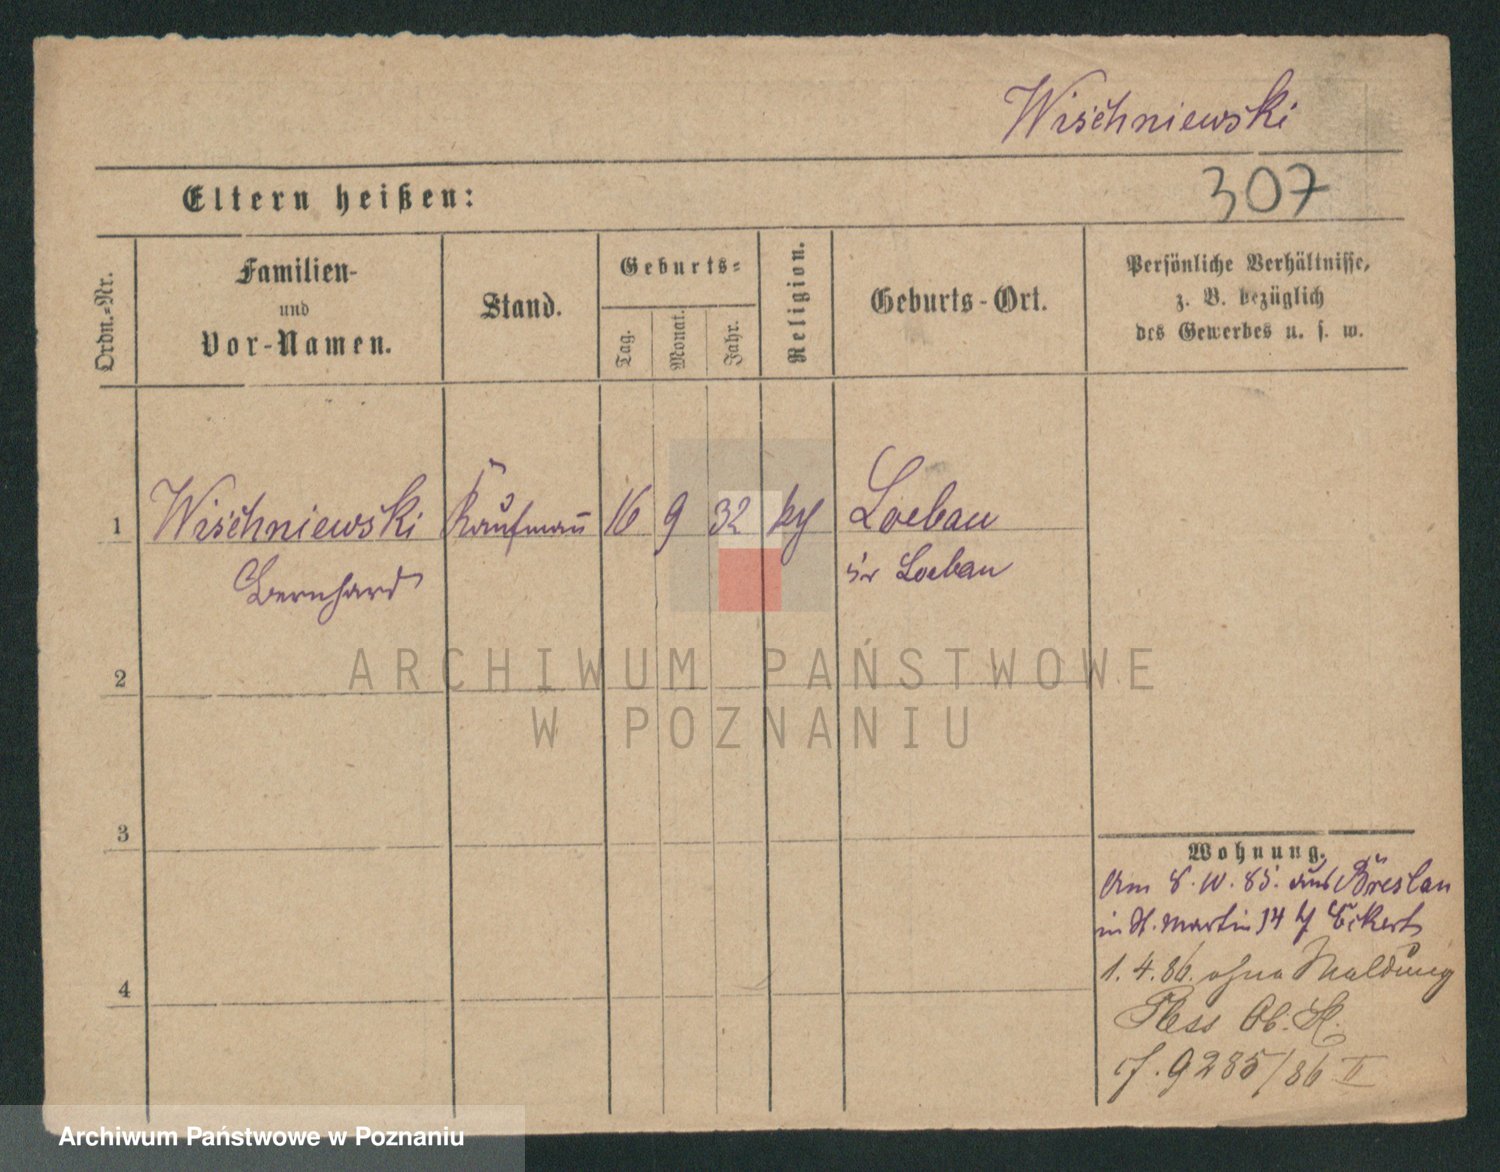 Wischniewski
307
Eltern heißen:
Ordn.-Nr.
Familien-
und
Vor-Namen.
Stand.
Geburts-
Tag.
Monat.
Jahr.
Religion.
Geburts-Ort.
Persönliche Verhältnisse,
z. B. bezüglich
des Gewerbes u. s. w.
1 Wischniewski Kaufmann 16 9 32 Loebau
Bernhard Loebau
2
3
4
Wohnung.
Am 8. 10. 85. aus Breslau
in St. Martin 34 Eckert
1. 4. 86. ohne Meldung
Pless Ob. S.
J. 9285/86 II
ARCHIWUM PAŃSTWOWE
W POZNANIU
Archiwum Państwowe w Poznaniu